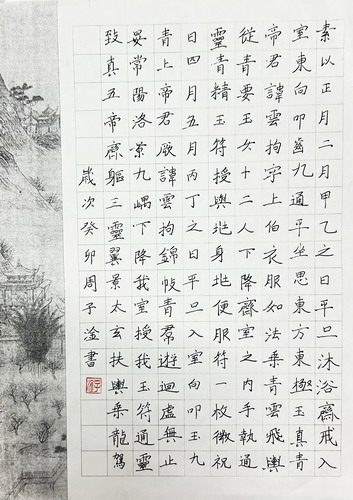 素以正月二月甲乙之日平旦沐浴齋戒入
室東向叩齒九通平坐思東方東極玉真青
帝君諱雲拘字上伯衣服如法乘青雲飛輿
從青要玉女十二人下降齋室之内手執通
靈青精玉符授與兆身兆便服符一枚微祝
日四月五月丙丁之日平旦入室向叩玉九
青上帝君厥諱雲拘錦帔青帬遊迴虛無止
晏常陽洛景九嵎下降我室授我玉符通靈
致真五帝齋軀三靈翼景太玄扶輿乘龍駕
歲次癸卯周子淦書